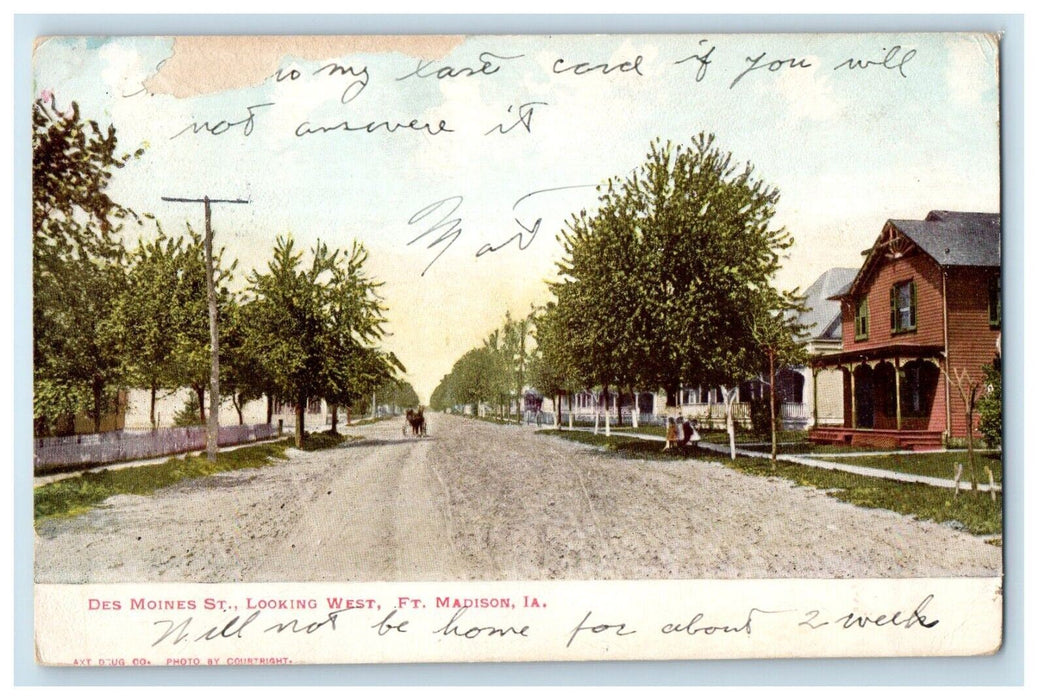 to my last card if you will
not answere it
Mat
DES MOINES ST., LOOKING WEST, FT. MADISON, IA.
Will not be home for about 2 week
DRUG CO. PHOTO BY COURTRIGHT.